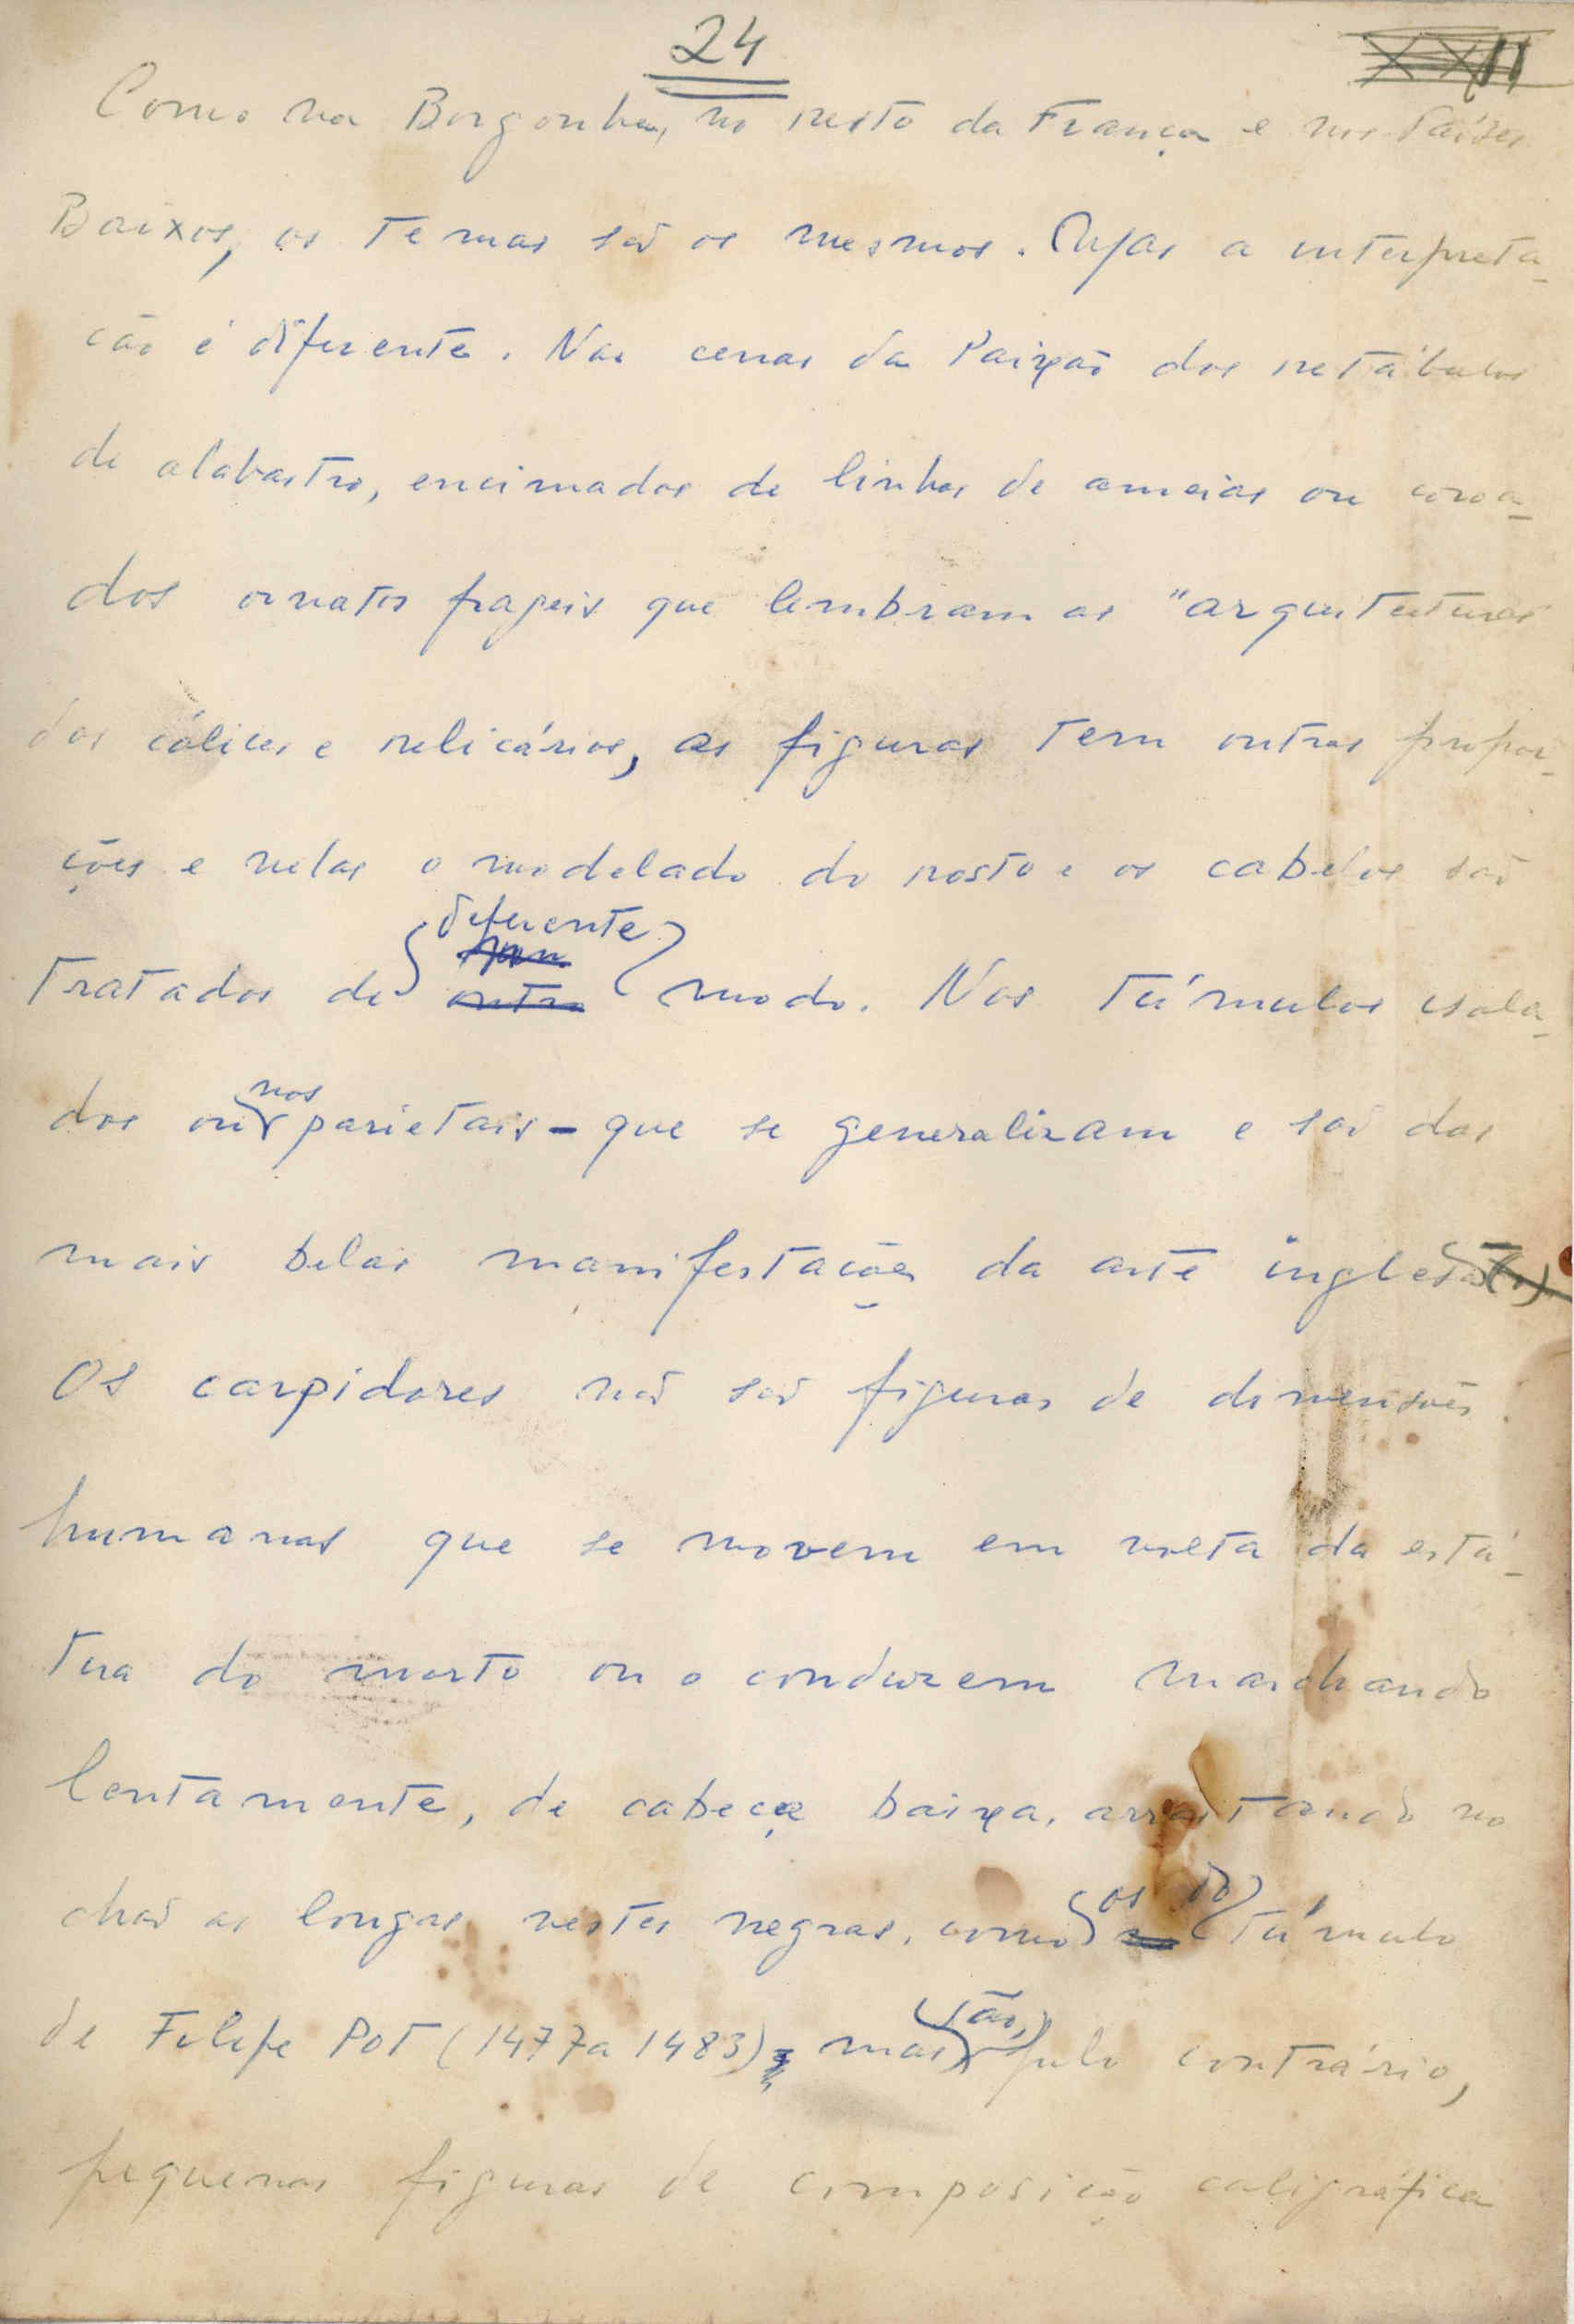 24
XXII
Como na Borgonha, no resto da França e nos Países
Baixos, os temas são os mesmos. Mas a interpreta-
ção é diferente. Nas cenas da Paixão dos retábulos
de alabastro, encimados de linhas de ameias ou coroa-
dos ornatos frageis que lembram as "arquitecturas
dos cálices e relicários, as figuras tem outras propor-
ções e nelas o modelado do rosto e os cabelos são
diferente
tratados de outro modo. Nos túmulos isola-
nos
dos ou parietais - que se generalizam e são das
mais belas manifestações da arte inglesa -
Os carpidores não são figuras de dimensões
humanas que se movem em volta da está-
tua do morto ou o conduzem marchando
lentamente, de cabeça baixa, arrastando no
os do
chão as longas vestes negras, como túmulo
são,
de Filipe Pot (1477 a 1483), mas pelo contrário,
pequenas figuras de composição caligráfica